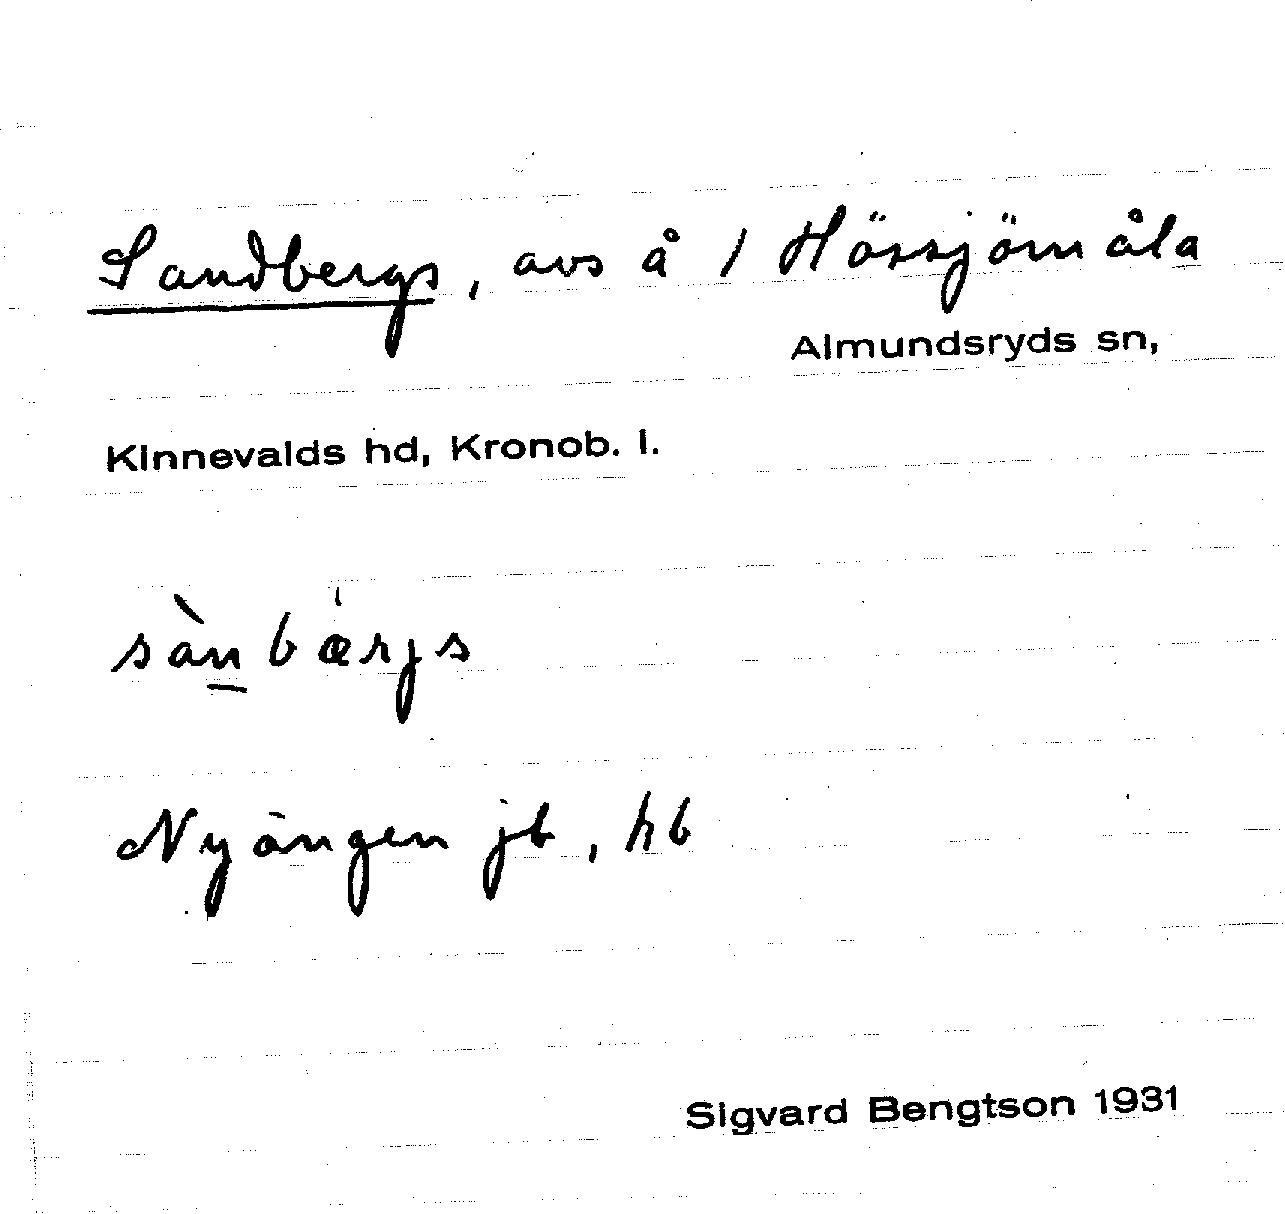 Sandbergs, avs å 1 Hössjömåla
Almundsryds sn,
Kinnevalds hd, Kronob. l.
sànbærgs
Nyängen jb, hb
Sigvard Bengtson 1931